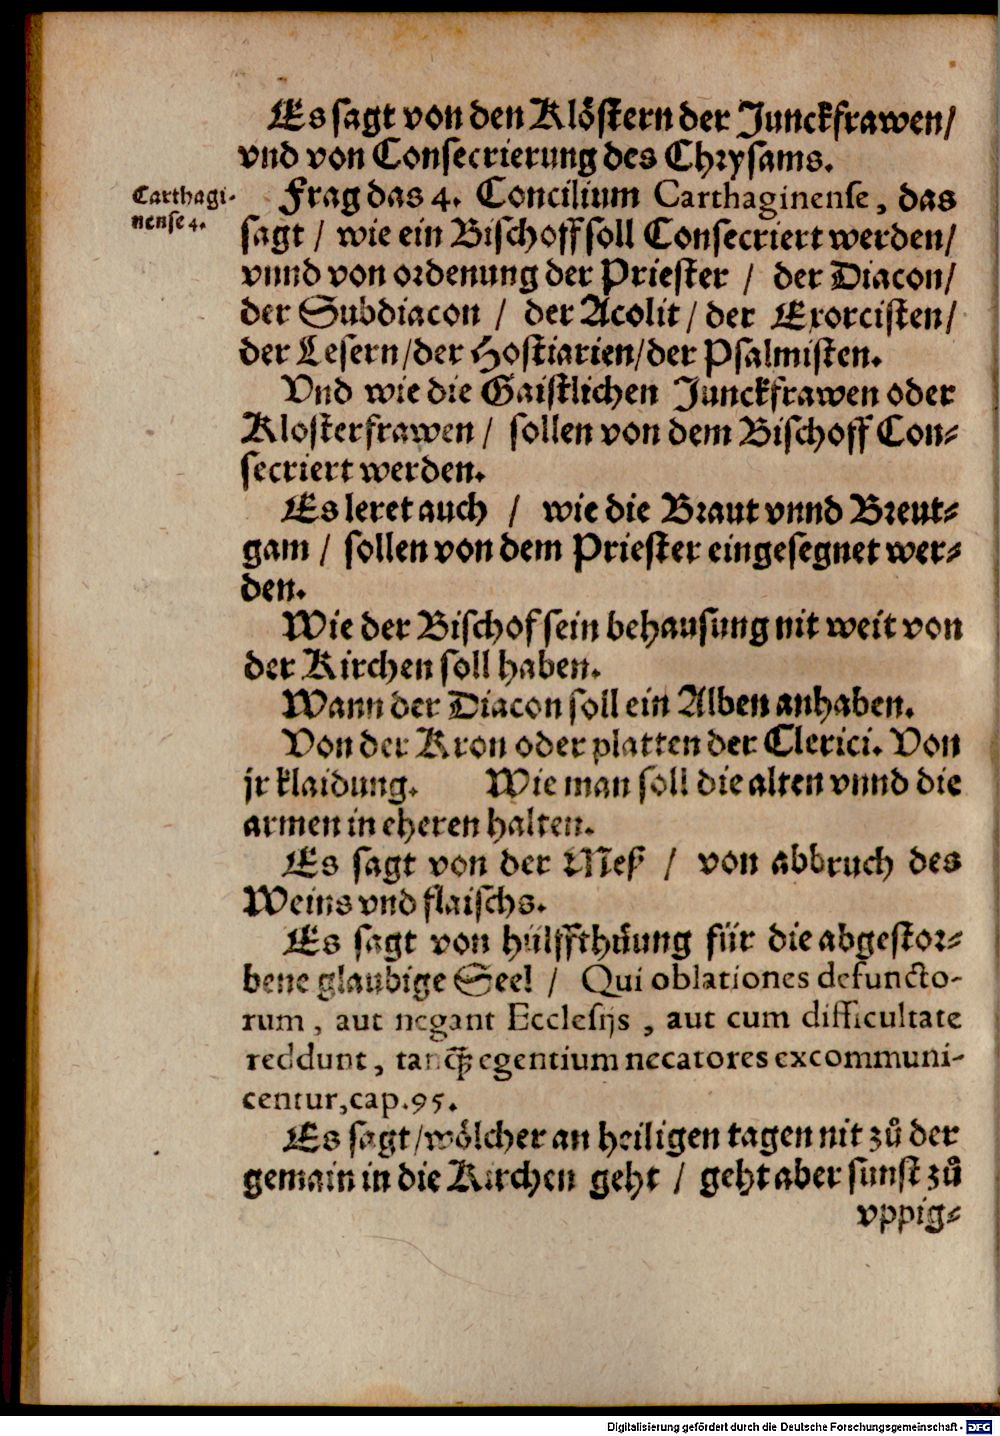 Es sagt von den Klöstern der Junckfrawen/
vnd von Consecrierung des Chrysams.
Carthagi-
nense 4.
Frag das 4. Concilium Carthaginense, das
sagt / wie ein Bischoff soll Consecriert werden/
vnnd von ordenung der Priester / der Diacon/
der Subdiacon / der Acolit / der Exorcisten/
der Lesern/der Hostiarien/der Psalmisten.
Vnd wie die Gaistlichen Junckfrawen oder
Klosterfrawen / sollen von dem Bischoff Con-
secriert werden.
Es leret auch / wie die Braut vnnd Breut-
gam / sollen von dem Priester eingesegnet wer-
den.
Wie der Bischof sein behausung nit weit von
der Kirchen soll haben.
Wann der Diacon soll ein Alben anhaben.
Von der Kron oder platten der Clerici. Von
jr klaidung. Wie man soll die alten vnnd die
armen in eheren halten.
Es sagt von der Meß / von abbruch des
Weins vnd flaischs.
Es sagt von hülffthůung für die abgestor-
bene glaubige Seel / Qui oblationes defuncto-
rum, aut negant Ecclesijs, aut cum difficultate
reddunt, tanq̃ egentium necatores excommuni-
centur, cap. 95.
Es sagt/wölcher an heiligen tagen nit zů der
gemain in die Kirchen geht / geht aber sunst zů
vppig-
Digitalisierung gefördert durch die Deutsche Forschungsgemeinschaft - DFG